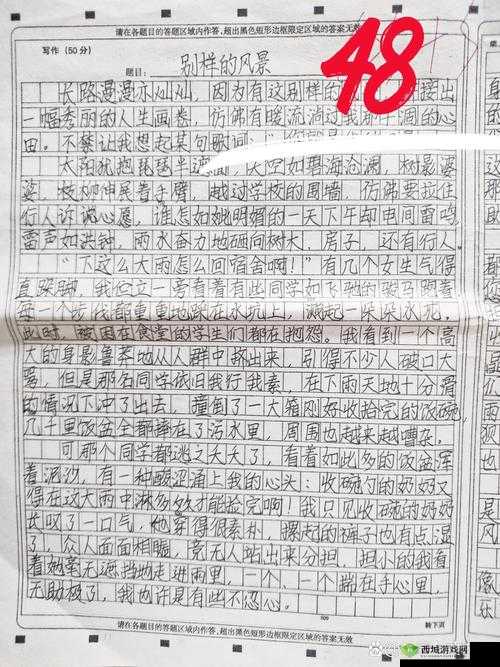 请在各题目的答题区域内作答,超出黑色矩形边框限定区域的答案无效
48
写作(50分)
题目: 别样的风景
长路漫漫亦灿灿,因为有这别样的
一幅秀丽的人生画卷,仿佛有暖流淌过我渐干涸的心
田。不禁让我想起某句歌词:
太阳犹抱琵琶半遮面,天空如碧海沧澜,树景婆
娑,枝柳伸展着手臂,越过学校的围墙,仿佛要拉住
行人许诉心愿,谁怎如她明媚的一天下午却电闪雷鸣,
雷声如洪钟,雨水奋力地砸向树大,房子,还有行人
“下这么大雨怎么回宿舍啊!”有几个女生气得
直跺脚,我伫立一旁看着有些同学如飞驰的骏马跟着
每一个步伐都重重地踩在水坑上,溅起一朵朵水花,
此时,被困在食堂的学生们都在抱怨。我看到一个高
大的身影鲁莽地从人群中挤出来,引得不少人破口大
骂,但是那名同学依旧我行我素,在下雨天地十分滑
的情况下冲了出去,撞倒了一大箱刚好收拾完的饭碗,
几千里饭盆全都摔在了污水里,周围也越来越嘈杂。
可那个同学都逃之夭夭了,看着如此多的饭盆浑
着泥沙,有一种酸涩涌上我的心头:收碗勺的奶奶又
得在这大雨中淋多久才能捡完啊!我只见收碗的奶奶
长叹了一口气,她穿得很素朴,骒起的裤子也有点湿
了,众人面面相瞌,竟无人站出来分担,担小的我看
着她毫无遮挡地走进雨里,一个、一个踹在手心里,
无助极了,我也许是有些不忍心。
转下页
请在各题目的答题区域内作答,超出黑色矩形边框限定区域的答案无效
西城游戏网